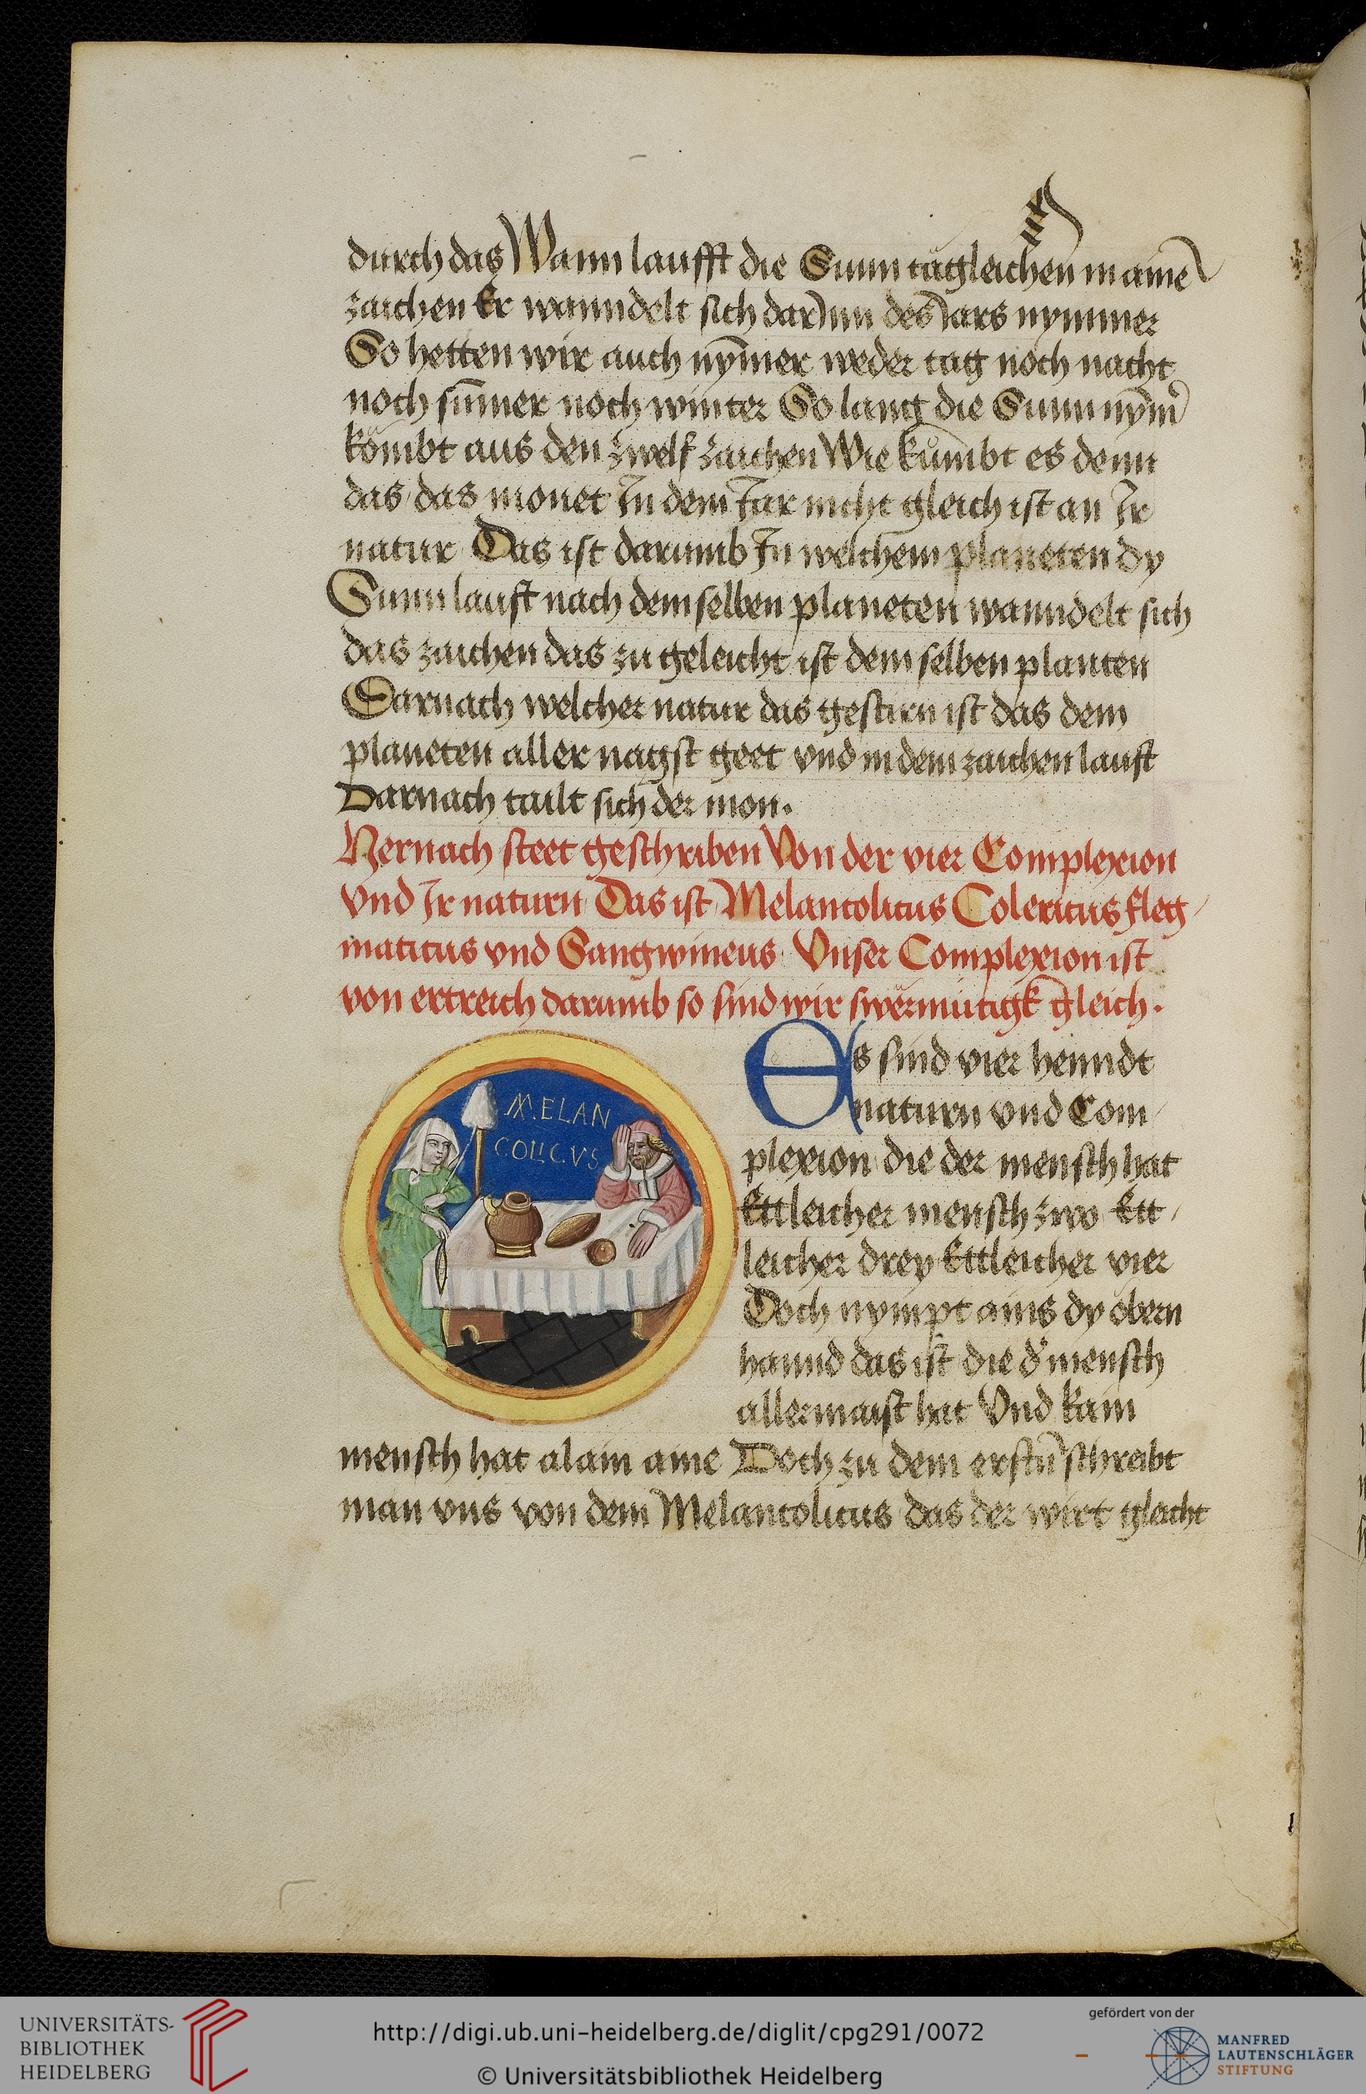 durch das Wann laufft die Sunn tägleichen in aine
zaichen Er wanndelt sich darInn des Iars nymmer
So hetten wir auch nȳmer weder tag noch nacht
noch sūmer noch winter So lang die Sunn nym̄
kömbt aus den zwelf zaichen Wie kůmbt es denn
das das monet In dem Iar nicht gleich ist an Ir
natur Das ist darumb In welchem planeten dy
Sunn lauft nach dem selben planeten wanndelt sich
das zaichen das zu geleicht ist dem selben planten
Darnach welcher natur das gestirn ist das dem
planeten aller nagst geet vnd in dem zaichen lauft
Darnach tailt sich der mon.
Hernach steet geschriben Von der vier Complexion
vnd Ir naturn Das ist Melancolicus Colericus fleg
maticus vnd Sangwineus Vnser Complexion ist
von ertreich darumb so sind wir swërmütigk gleich.
MELAN
COLICVS
Es sind vier henndt
naturn vnd Com
plexion die der mensch hat
Ettleicher mensch zwo Ett
leicher drey Ettleicher vier
Doch nympt ains dy öbern
hannd das ist die d' mensch
allermaist hat Vnd kain
mensch hat alain aine Doch zu dem erstn̄ schreibt
man vns von dem Melancolicus das der wirt gleicht
UNIVERSITÄTS-
BIBLIOTHEK
HEIDELBERG
http://digi.ub.uni-heidelberg.de/diglit/cpg291/0072
© Universitätsbibliothek Heidelberg
gefördert von der
MANFRED
LAUTENSCHLÄGER
STIFTUNG